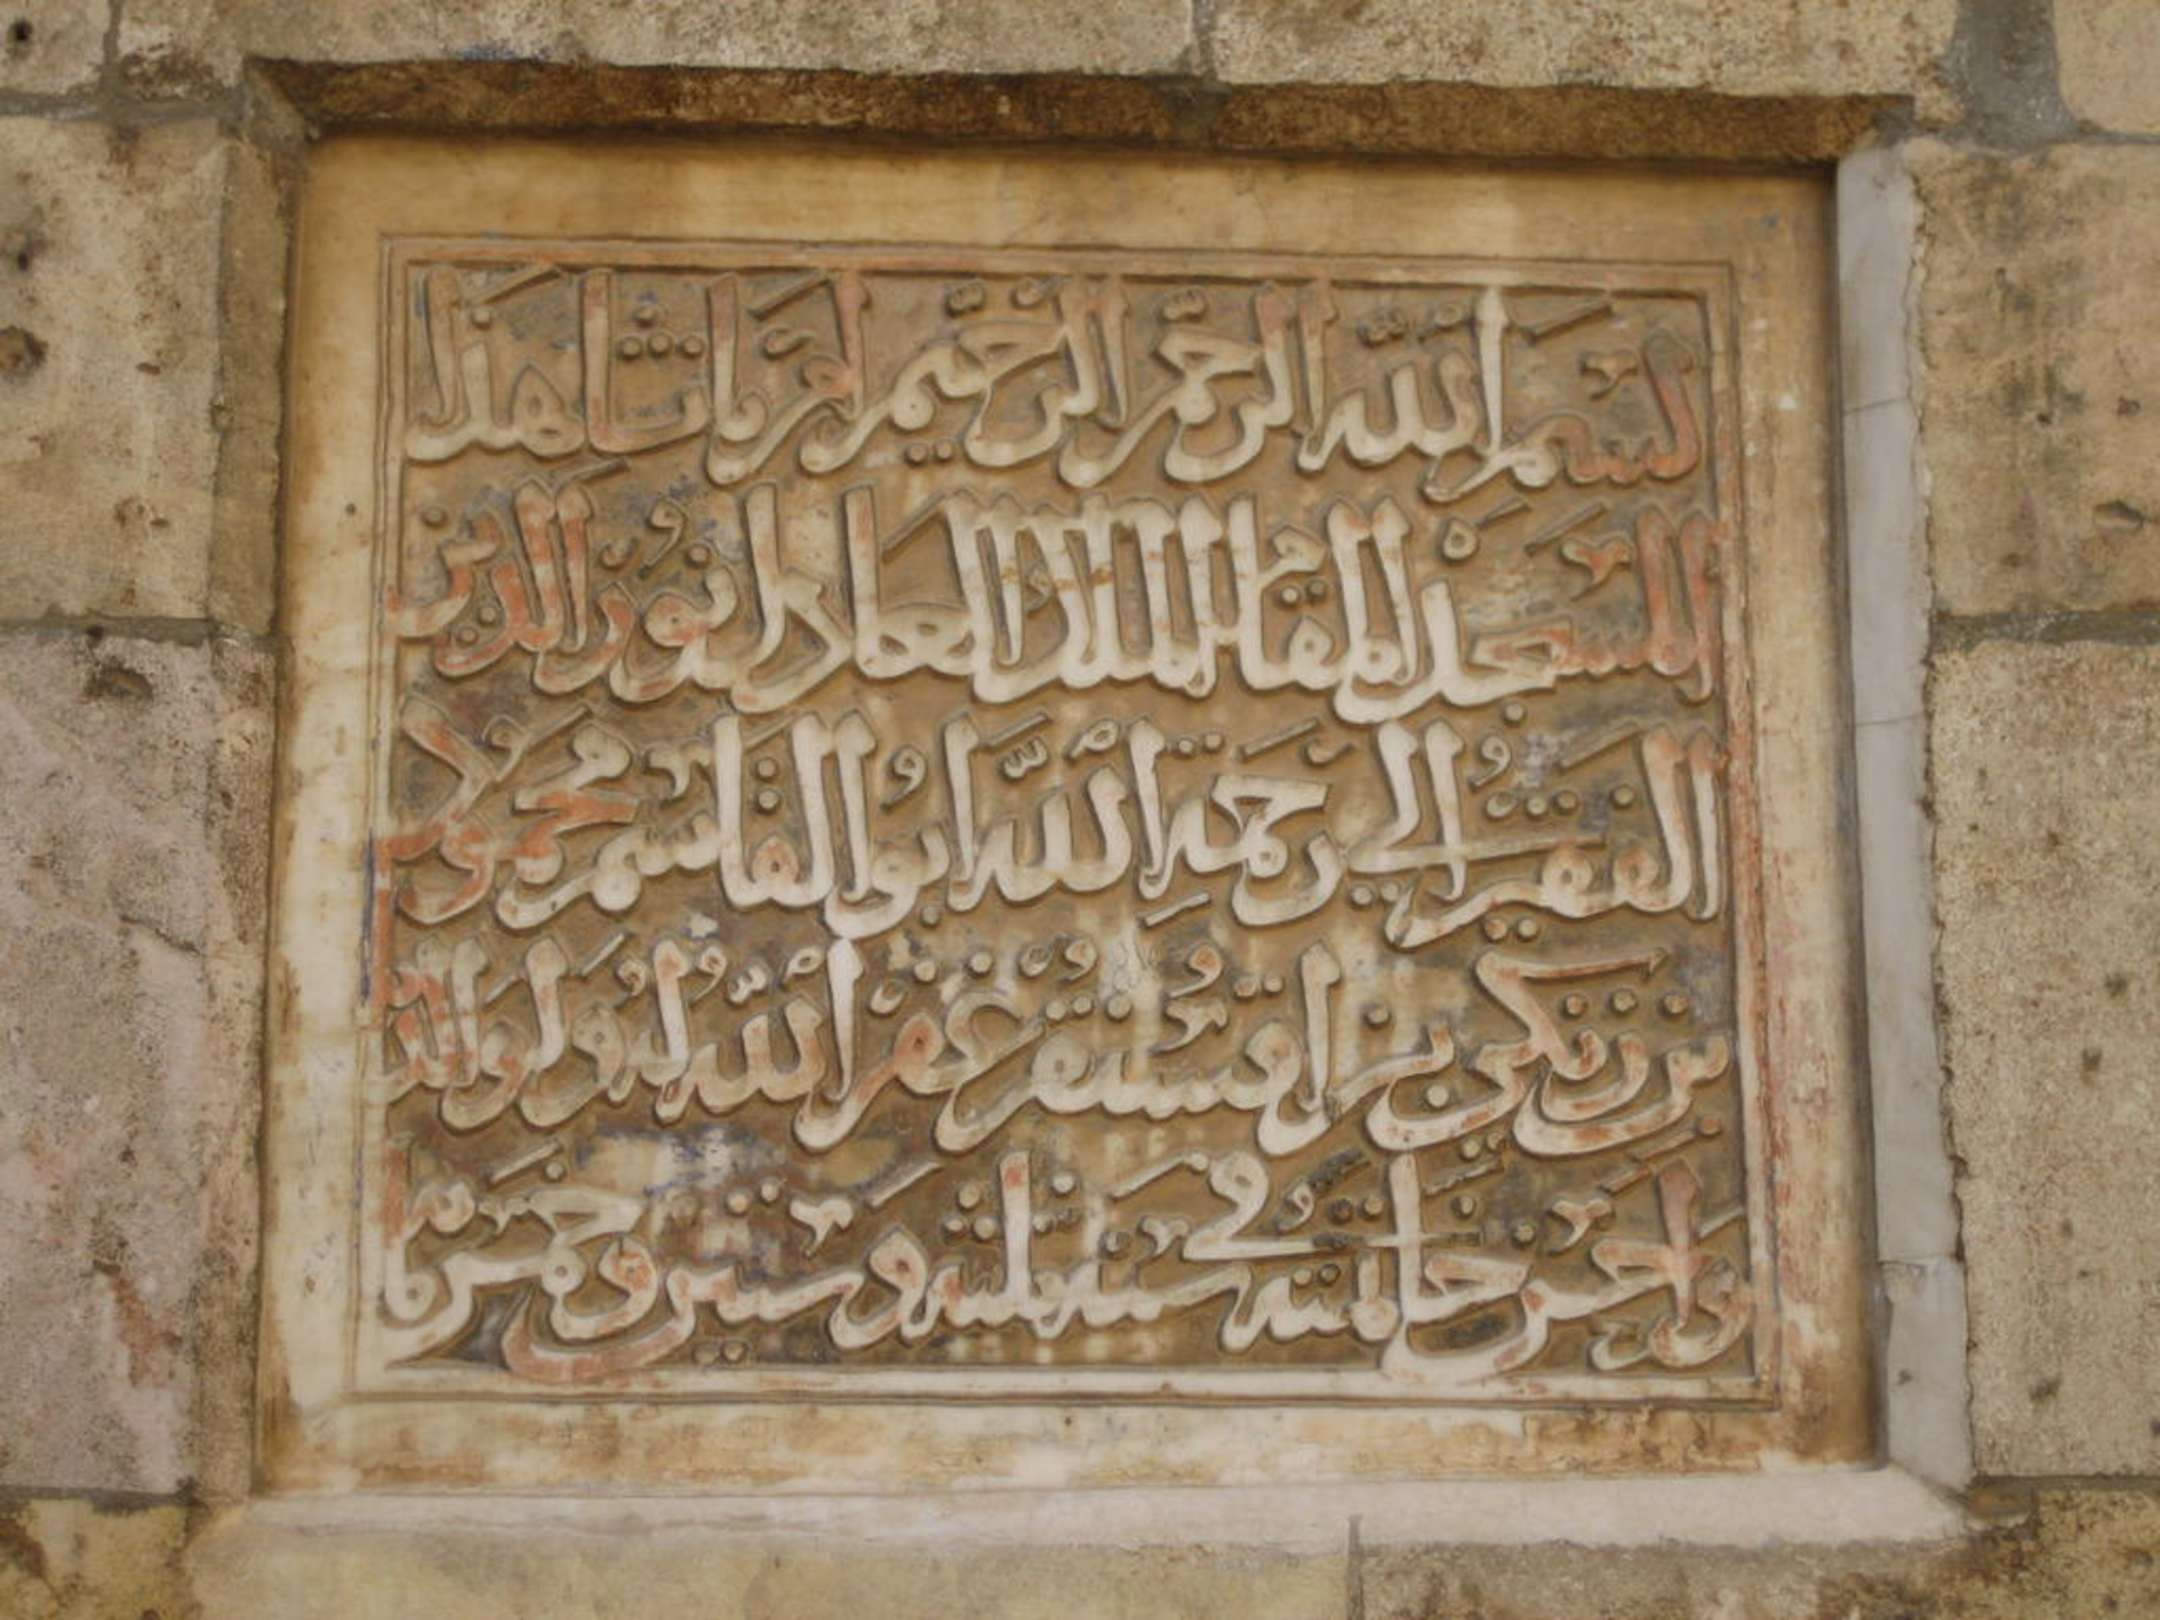 بسم الله الرحمن الرحيم امر بانشا هذا
المسجد المقام الملك العادل نور الدين
الفقير الى رحمة الله ابو القاسم محمود
بن زنكي بن اقسنقر غفر الله له ولوالديه
واحسن خاتمته في سنة ثلثة وستين وخمس مائة